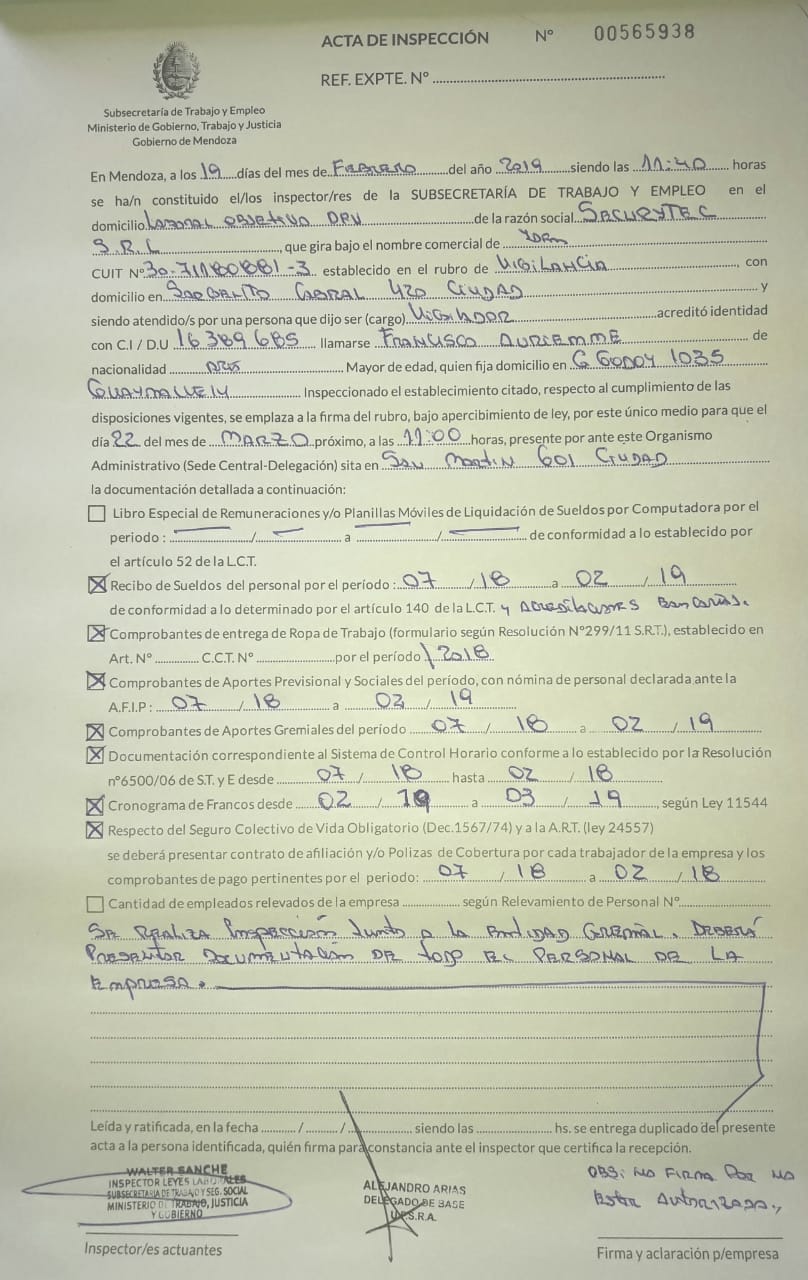 ACTA DE INSPECCIÓN Nº 00565938
REF. EXPTE. Nº
Subsecretaría de Trabajo y Empleo
Ministerio de Gobierno, Trabajo y Justicia
Gobierno de Mendoza
En Mendoza, a los 19 días del mes de Febrero del año 2019 siendo las 11:40 horas
se ha/n constituido el/los inspector/res de la SUBSECRETARÍA DE TRABAJO Y EMPLEO en el
domicilio Laboral objetivo DPV de la razón social Securytec
S.R.L, que gira bajo el nombre comercial de Idem
CUIT Nº 30-71180881-3 establecido en el rubro de Vigilancia, con
domicilio en Sargento Cabral 420 Ciudad y
siendo atendido/s por una persona que dijo ser (cargo) Vigilador acreditó identidad
con C.I / D.U 16389685 llamarse Francisco Auriemme de
nacionalidad Arg Mayor de edad, quien fija domicilio en G Godoy 1035
Guaymallén Inspeccionado el establecimiento citado, respecto al cumplimiento de las
disposiciones vigentes, se emplaza a la firma del rubro, bajo apercibimiento de ley, por este único medio para que el
día 22 del mes de Marzo próximo, a las 11:00 horas, presente por ante este Organismo
Administrativo (Sede Central-Delegación) sita en San Martin 601 Ciudad
la documentación detallada a continuación:
Libro Especial de Remuneraciones y/o Planillas Móviles de Liquidación de Sueldos por Computadora por el
periodo : / a / de conformidad a lo establecido por
el artículo 52 de la L.C.T.
Recibo de Sueldos del personal por el período : 07 / 18 a 02 / 19
de conformidad a lo determinado por el artículo 140 de la L.C.T. y Acreditaciones Bancarias.
Comprobantes de entrega de Ropa de Trabajo (formulario según Resolución Nº299/11 S.R.T.), establecido en
Art. Nº C.C.T. Nº por el período \ 2018
Comprobantes de Aportes Previsional y Sociales del período, con nómina de personal declarada ante la
A.F.I.P : 07 / 18 a 02 / 19
Comprobantes de Aportes Gremiales del periodo 07 / 18 a 02 / 19
Documentación correspondiente al Sistema de Control Horario conforme a lo establecido por la Resolución
nº6500/06 de S.T. y E desde 07 / 18 hasta 02 / 18
Cronograma de Francos desde 02 / 19 a 03 / 19, según Ley 11544
Respecto del Seguro Colectivo de Vida Obligatorio (Dec.1567/74) y a la A.R.T. (ley 24557)
se deberá presentar contrato de afiliación y/o Polizas de Cobertura por cada trabajador de la empresa y los
comprobantes de pago pertinentes por el periodo: 07 / 18 a 02 / 18
Cantidad de empleados relevados de la empresa según Relevamiento de Personal Nº
Se realiza Inspección Junto a la Entidad Gremial. Deberá
Presentar Documentación de todo el Personal de la
Empresa.
Leída y ratificada, en la fecha / / siendo las hs. se entrega duplicado del presente
acta a la persona identificada, quién firma para constancia ante el inspector que certifica la recepción.
WALTER SANCHE
INSPECTOR LEYES LABORALES
SUBSECRETARIA DE TRABAJO Y SEG. SOCIAL
MINISTERIO DE TRABAJO, JUSTICIA
Y GOBIERNO
Inspector/es actuantes
ALEJANDRO ARIAS
DELEGADO DE BASE
U.P.S.R.A.
OBS: No Firma Por no
Estar Autorizado.,
Firma y aclaración p/empresa